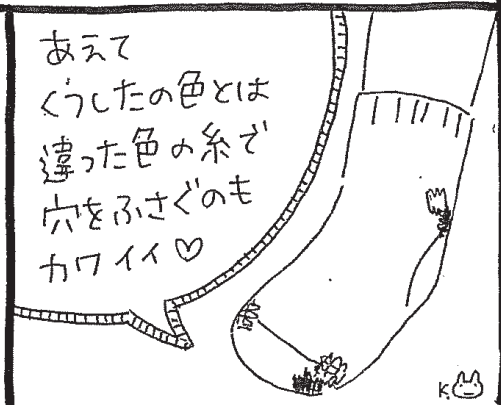 あえて
くつしたの色とは
違った色の糸で
穴をふさぐのも
カワイイ♡
K.